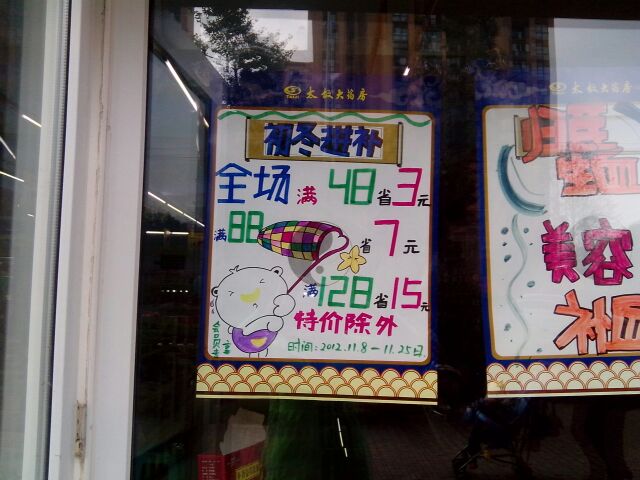 太极大药房
初冬进补
全场 满 48 省 3 元
满 88 省 7 元
满 128 省 15 元
特价除外
时间:2012.11.8－11.25日
太极大药房
美容